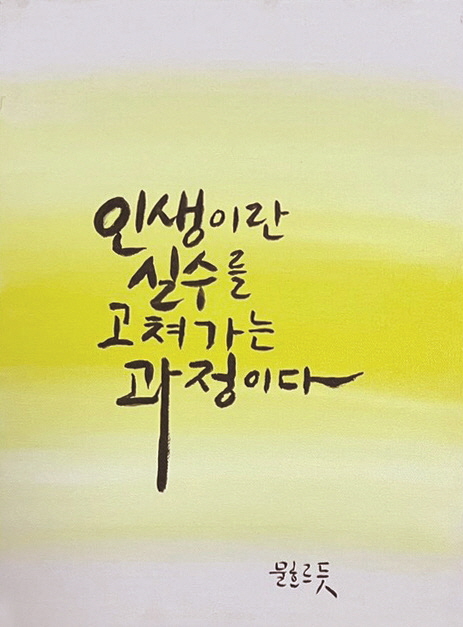 인생이란
실수를
고쳐가는
과정이다
물흐르듯